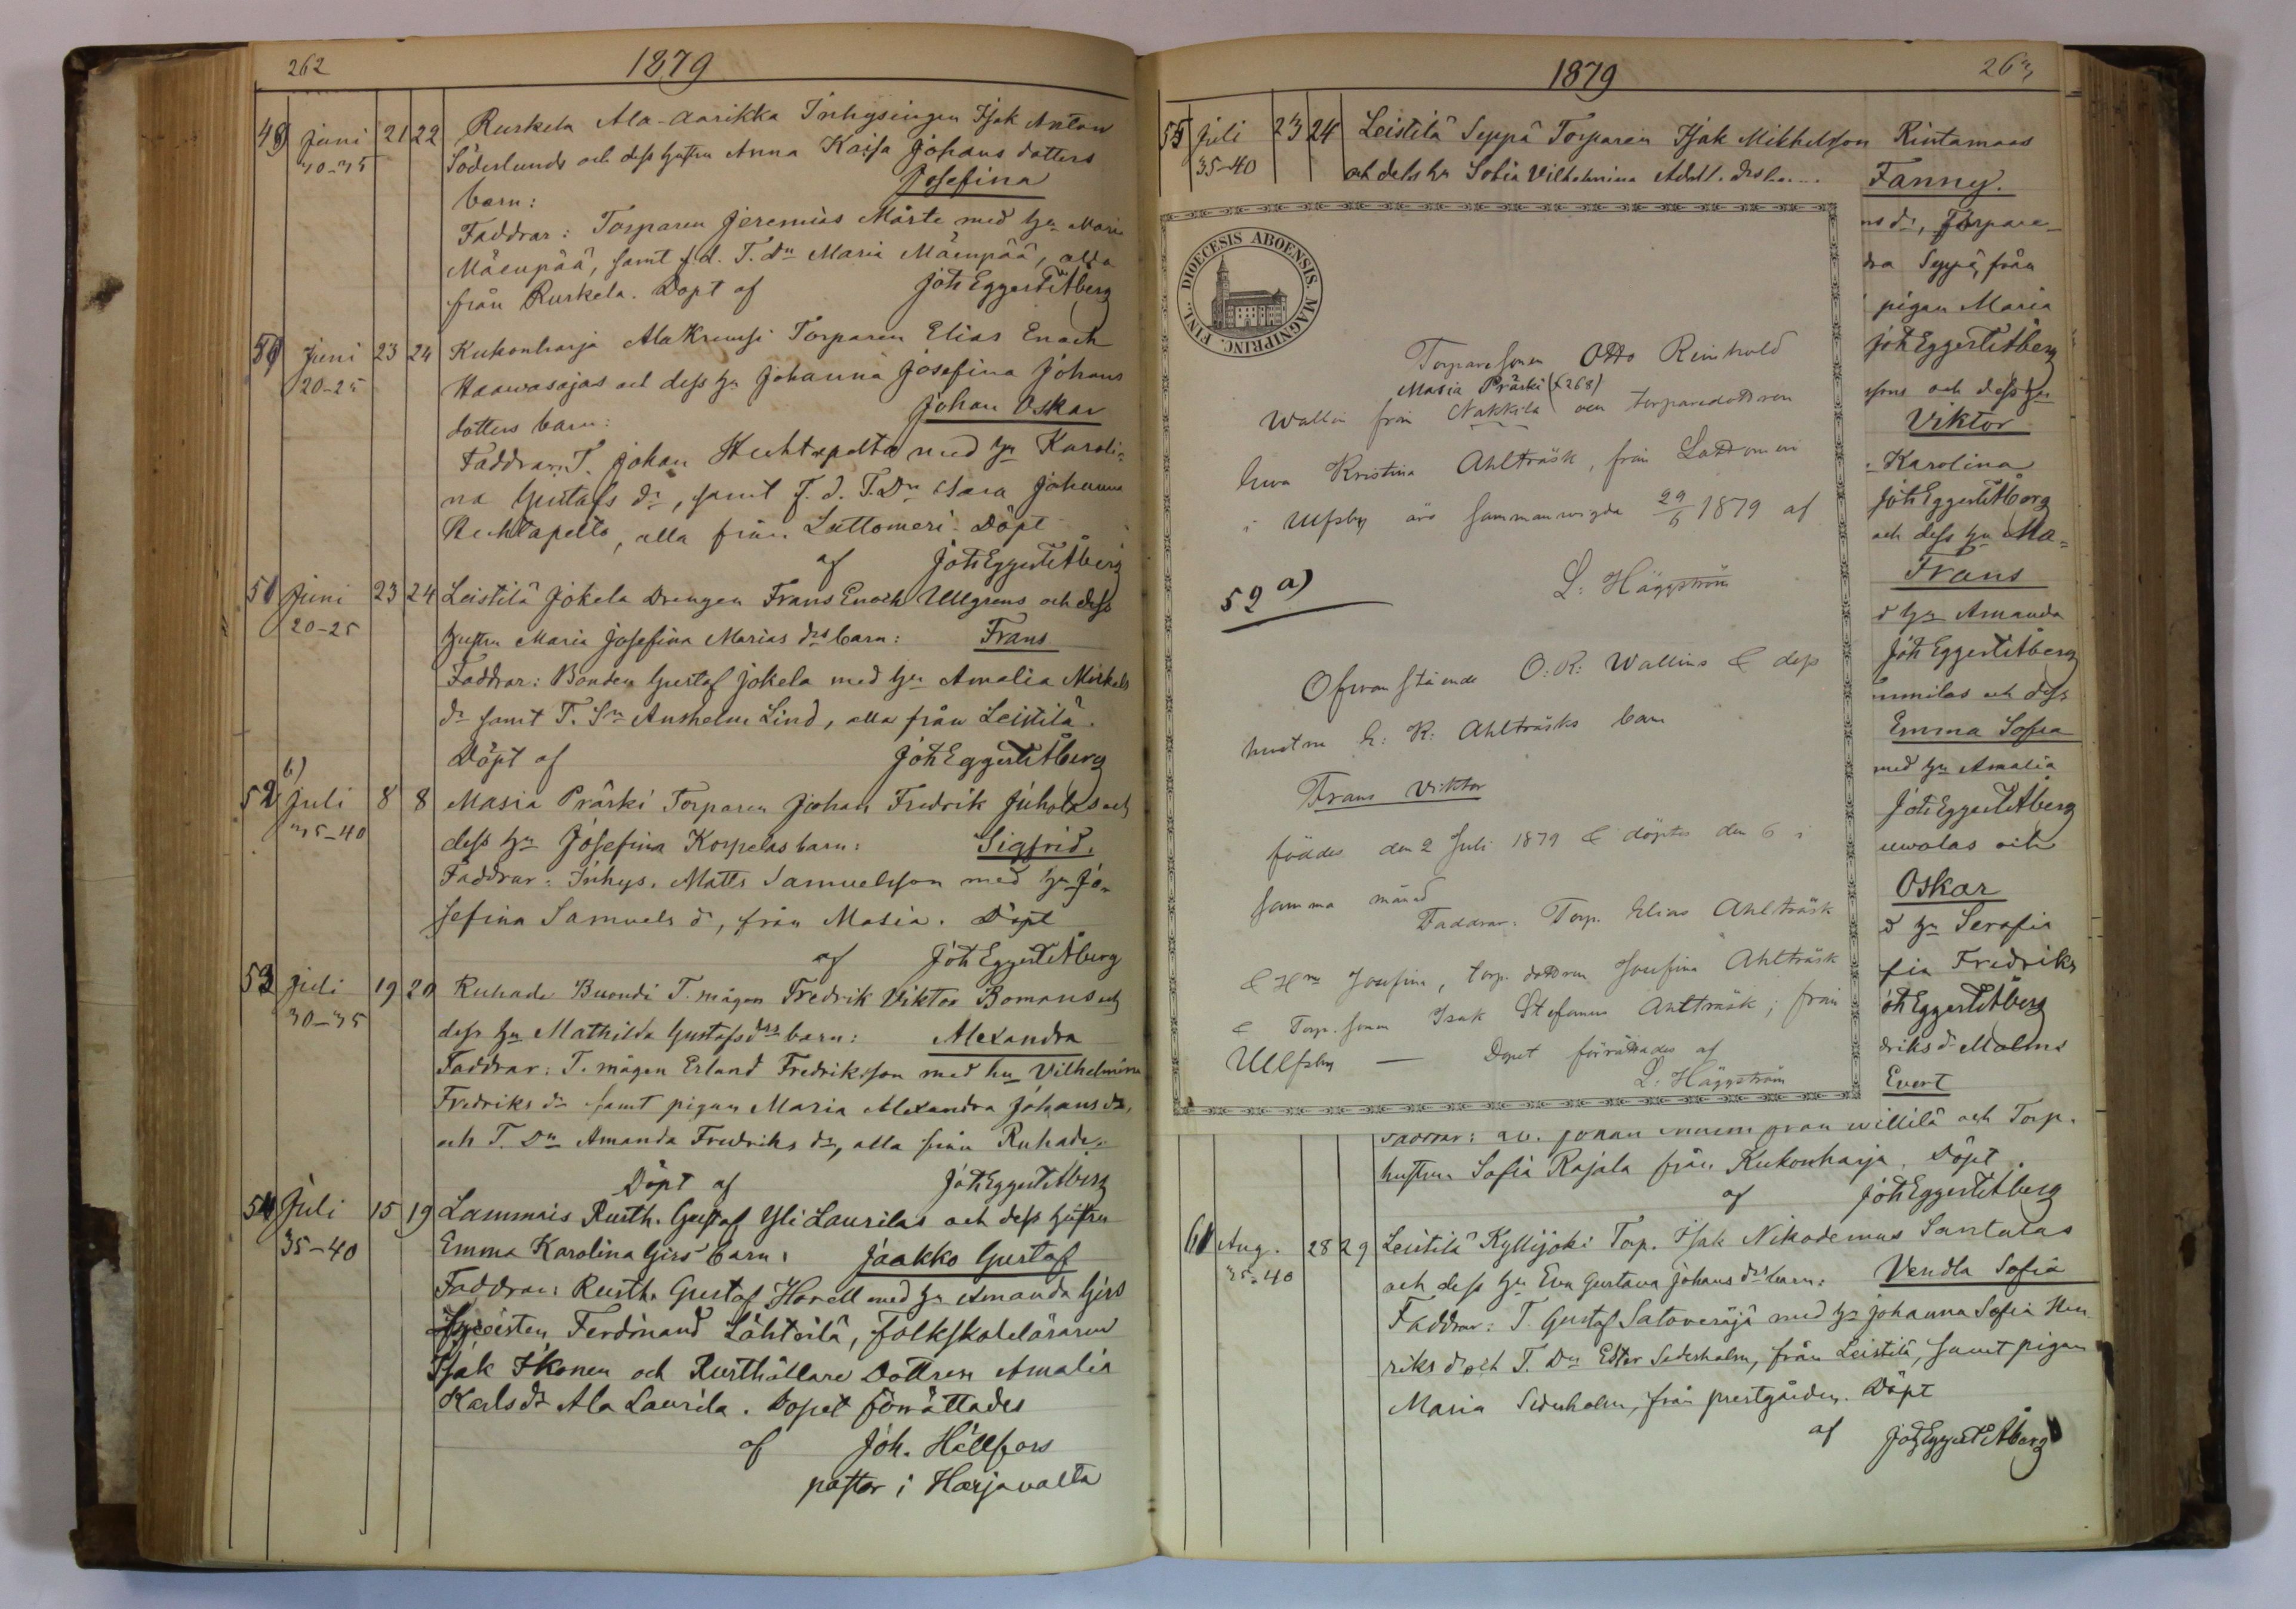 262
1879
49 Juni 21 22 Ruskela Ala-Aarikka Inhysingen Isak Anton
30-35 Söderlunds och dess hustru Anna Kaisa Johans dotters
barn: Josefina
Faddrar: Torparen Jeremias Mårte med hu Maria
Mäenpää, samt f.d. T. Dn Maria Mäenpää, alla
från Ruskela. Döpt af Joh Eggert Åberg
50 Juni 23 24 Kukonharja Ala Kruusi Torparen Elias Enoch
20-25 Haawasojas och dess hu Johanna Josefina Johans
dotters barn: Johan Oskar
Faddrar: T. Johan Huhtapelto med hu Karoli-
na Gustafs dr, samt T. Dn Sara Johanna
Huhtapelto, alla från Luttomeri. Döpt
af Joh Eggert Åberg
51 Juni 23 24 Leistilä Jokela Drengen Frans Enoch Ullgrens och dess
20-25 hustru Maria Josefina Marias drs barn: Frans
Faddrar: Bonden Gustaf Jokela med hu Amalia Mickels
dr samt T. Sn Anshelm Lind, alla från Leistilä.
Döpt af Joh Eggert Åberg
52 b) Juli 8 8 Masia Präski Torparen Johan Fredrik Juholas och
35-40 dess hu Josefina Korpelas barn: Sigfrid.
Faddrar: Inhys. Matts Samuelsson med hu Jo-
sefina Samuels dr, från Masia. Döpt
af Joh Eggert Åberg
53 Juli 19 20 Ruhade Buondi T. mågen Fredrik Viktor Bomans och
30-35 dess hu Mathilda Gustafs drs barn: Alexandra
Faddrar: T. mågen Erland Fredriksson med hu Vilhelmina
Fredriks dr samt pigan Maria Alexandra Johans dr,
och T. Dn Amanda Fredriks dr, alla från Ruhade.
Döpt af Joh Eggert Åberg
54 Juli 15 19 Lammais Rusth. Gustaf Yli Laurilas och dess hustru
35-40 Emma Karolina Girs barn: Jaakko Gustaf
Faddrar: Rusth. Gustaf Horell med hu Amanda Girs
Ferdinand Lähteilä, folkskoleläraren
Isak Ikonen och Rusthållare Dottren Amalia
Karls dr Ala Laurila. Dopet förrättades
af Joh. Hällfors
pastor i Harjavalta
1879
263
55 Juli 23 24 Leistilä Seppä Torparen Isak Mikkelsson Rintamaas
35-40 och dess hu Sofia Vilhelmina Fanny.
ns dr, Torpare-
dra Seppä, från
pigan Maria
Joh Eggert Åberg
sons och dess hu
Viktor
Karolina
Joh Eggert Åberg
och dess hu Ma-
Frans
d hu Amanda
Joh Eggert Åberg
och dess
Emma Sofia
med hu Amalia
Joh Eggert Åberg
och
Oskar
d hu Serafia
fia Fredriks
Joh Eggert Åberg
driks dr Malms
Evert
FINL. DIOECESIS ABOENSIS. MAGNIPRINC.
Torparesonen Otto Reinhold
Masia Präski (f 268)
Wallin från Nakkila och torparedottren
Ewa Kristina Ahlträsk, från Lattomeri
i Ulfsby äro sammanvigda 29/6 1879 af
L: Häggström
52 a)
Ofvanstående O: R: Wallins & dess
hustru E: K: Ahlträsks barn
Frans Viktor
föddes den 2 Juli 1879 & döptes den 6 i
samma månad
Faddrar: Torp. Elias Ahlträsk
& Hru Josefina, torp. dottren Josefina Ahlträsk
& Torp. sonen Isak Stefanus Ahlträsk; från
Ulfsby — Dopet förrättades af
L: Häggström
Faddrar: Johan från Willilä och Torp.
hustrun Sofia Rajala från Kukonharja. Döpt
af Joh Eggert Åberg
61 Aug. 28 29 Leistilä Kyllijoki Torp. Isak Nikodemus Santalas
35-40 och dess hu Eva Gustava Johans drs barn: Vendla Sofia
Faddrar: T. Gustaf Satoveräjä med hu Johanna Sofia Hen
riks dr och T. Dn Ester Sederholm, från Leistilä, samt pigan
Maria Sederholm, från prestgården. Döpt
af Joh Eggert Åberg